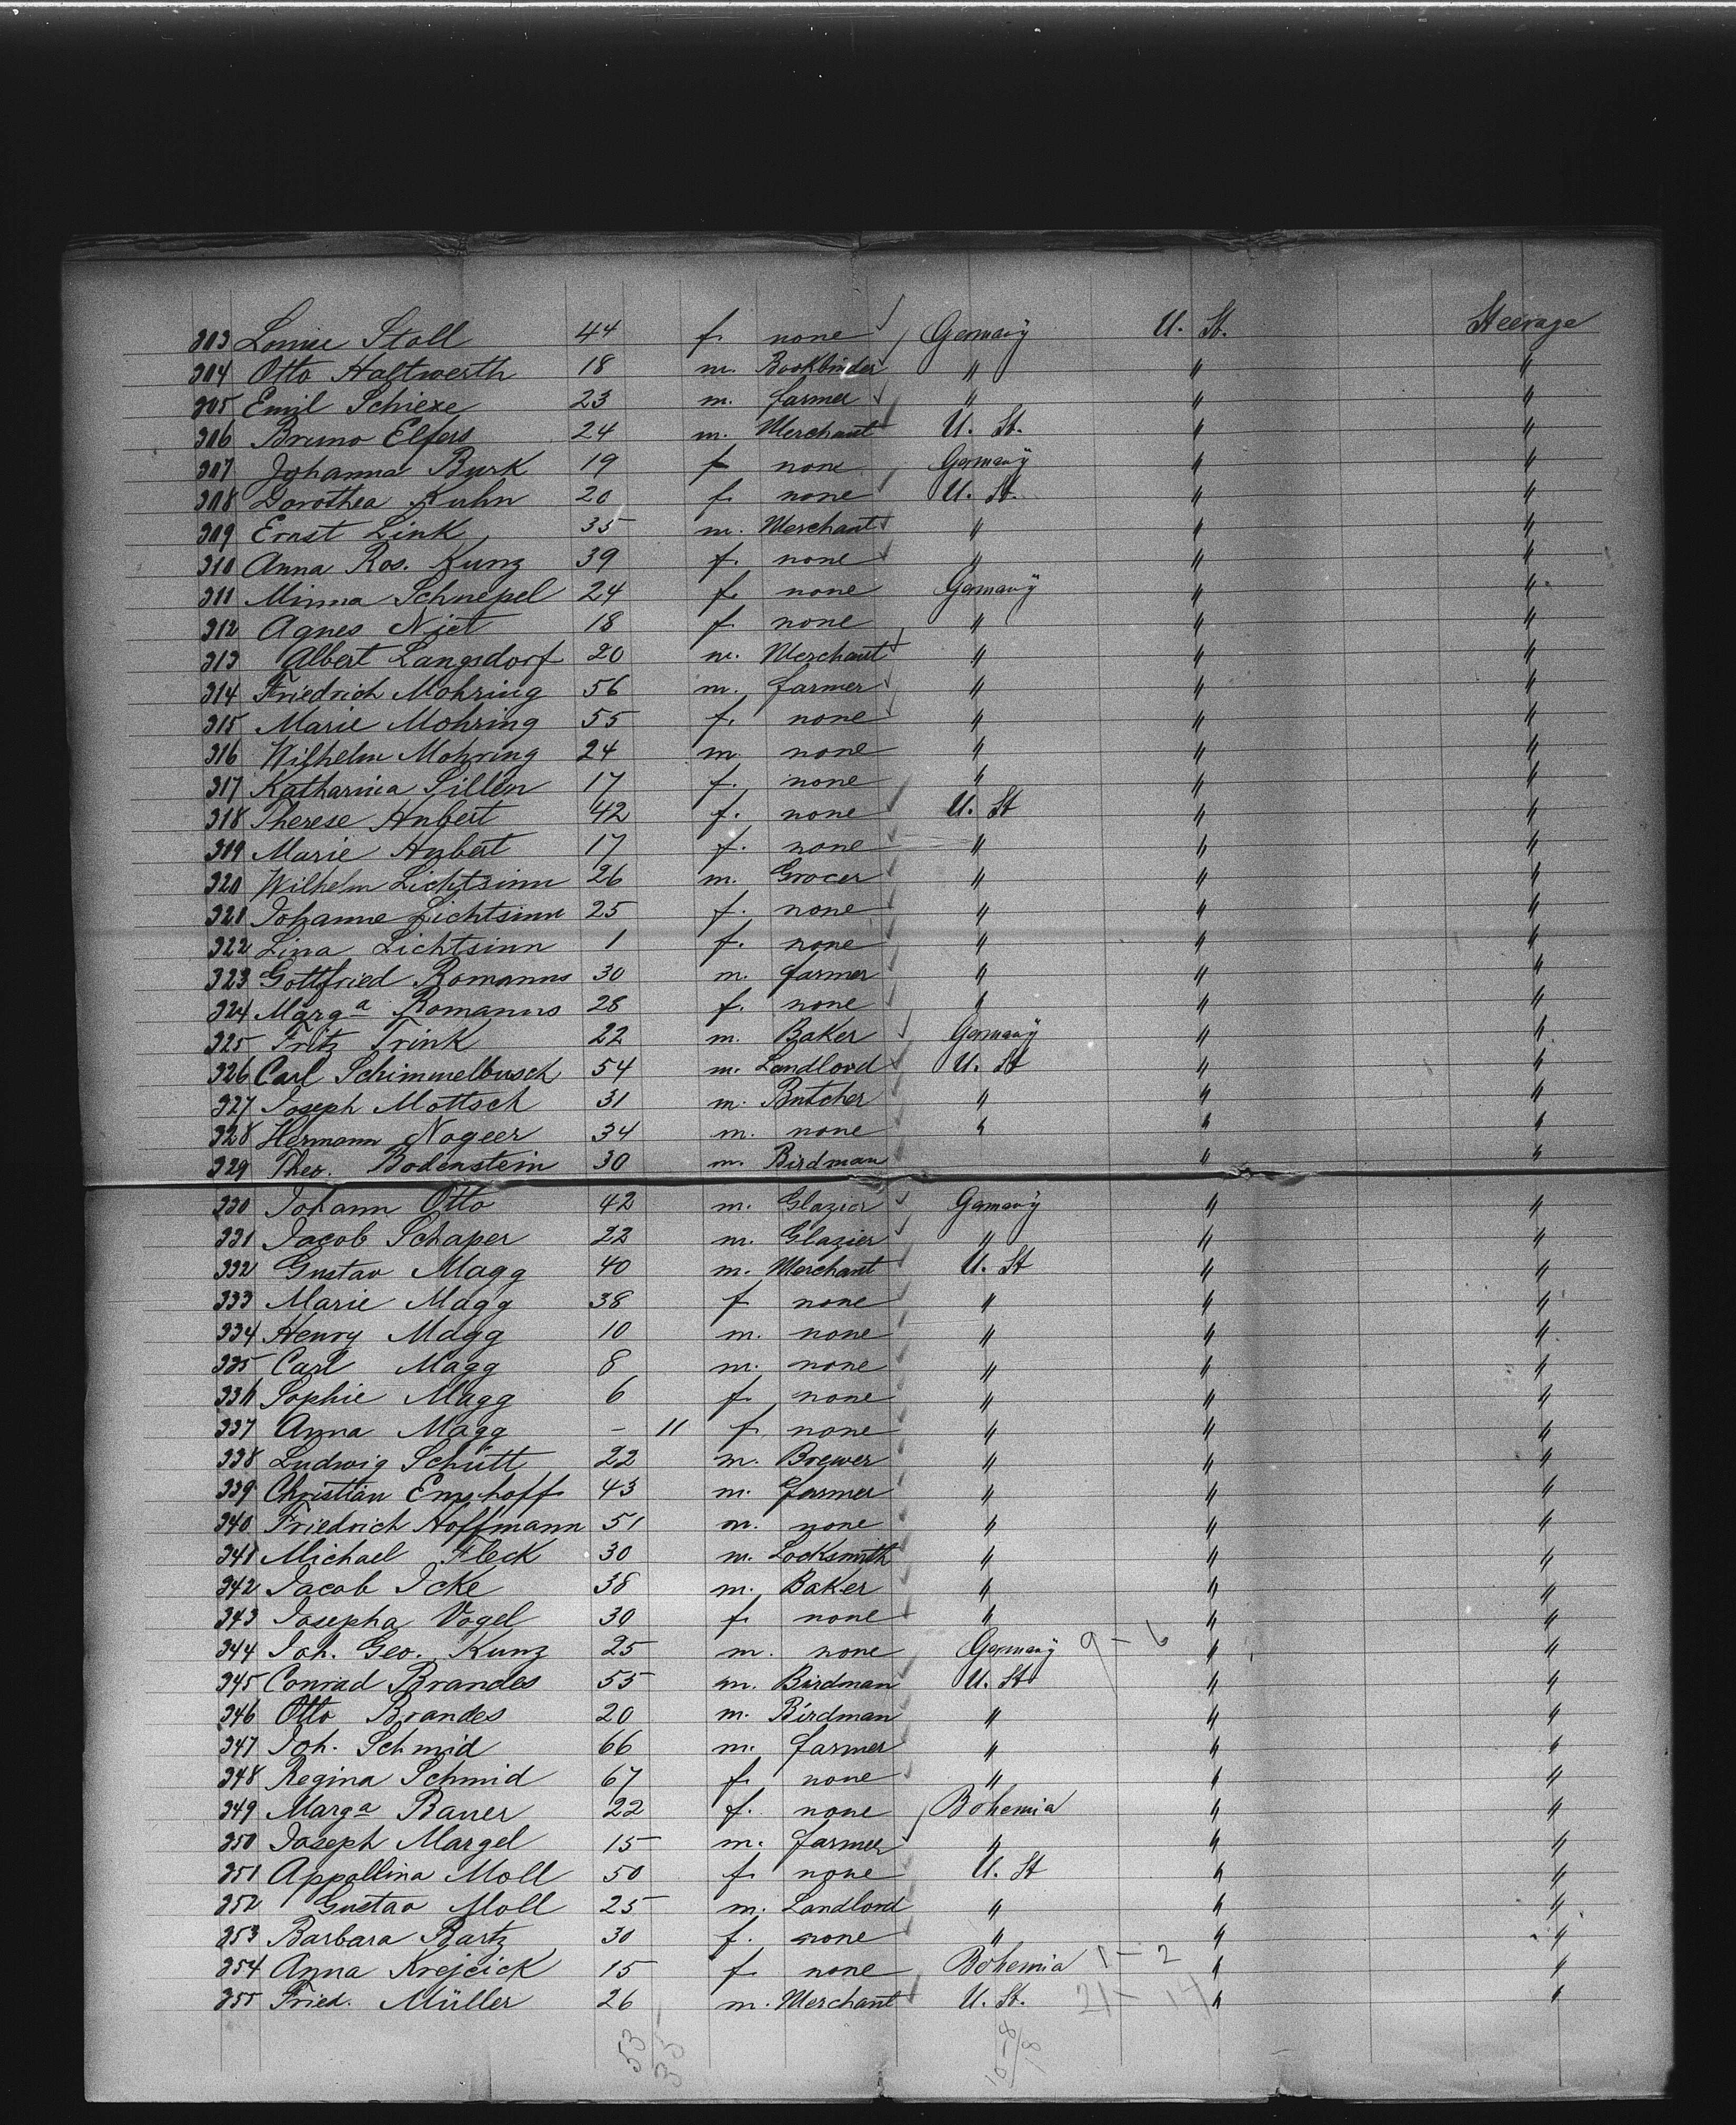 303 Louise Stoll 44 f. none Germany U. St. Steerage
304 Otto Haltwerth 18 m. Bookbinder " " "
305 Emil Schiexe 23 m. farmer " " "
306 Bruno Elfers 24 m. Merchant U. St. " "
307 Johanna Burk 19 f none Germany " "
308 Dorothea Kuhn 20 f. none U. St. " "
309 Ernst Link 35 m. Merchant " " "
310 Anna Ros. Kunz 39 f. none " " "
311 Minna Schnepel 24 f. none Germany " "
312 Agnes Niet 18 f. none " " "
313 Albert Langsdorf 20 m. Merchant " " "
314 Friedrich Mohring 56 m. farmer " " "
315 Marie Mohring 55 f. none " " "
316 Wilhelm Mohring 24 m none " " "
317 Katharina Sillem 17 f. none " " "
318 Therese Hubert 42 f. none U. St " "
319 Marie Hubert 17 f. none " " "
320 Wilhelm Lichtsinn 26 m. Grocer " " "
321 Johanne Lichtsinn 25 f. none " " "
322 Lina Lichtsinn 1 f. none " " "
323 Gottfried Romanns 30 m. farmer " " "
324 Marga Romanns 28 f. none " " "
325 Fritz Trink 22 m. Baker Germany " "
326 Carl Schimmelbusch 54 m. Landlord U. St " "
327 Joseph Mottsch 31 m. Butcher " " "
328 Hermann Nogeer 34 m. none " " "
329 Theo. Bodenstein 30 m. Birdman " "
330 Johann Otto 42 m. Glazier Germany " "
331 Jacob Schaper 22 m. Glazier " " "
332 Gustav Magg 40 m. Merchant U. St " "
333 Marie Magg 38 f none " " "
334 Henry Magg 10 m. none " " "
335 Carl Magg 8 m. none " " "
336 Sophie Magg 6 f. none " " "
337 Anna Magg – 11 f none " " "
338 Ludwig Schütt 22 m. Brewer " " "
339 Christian Emshoff 43 m. farmer " " "
340 Friedrich Hoffmann 51 m. none " " "
341 Michael Fleck 30 m. Locksmith " " "
342 Jacob Icke 38 m. Baker " " "
343 Josepha Vogel 30 f. none " " "
344 Joh. Geo. Kunz 25 m. none Germany 9 – 6 " "
345 Conrad Brandes 55 m. Birdman U. St " "
346 Otto Brandes 20 m. Birdman " " "
347 Joh. Schmid 66 m. farmer " " "
348 Regina Schmid 67 f. none " " "
349 Marga Bauer 22 f. none Bohemia " "
350 Joseph Margel 15 m. farmer " " "
351 Appollina Moll 50 f. none U. St " "
352 Gustav Moll 25 m. Landlord " " "
353 Barbara Bartz 30 f. none " " "
354 Anna Krejcick 15 f none Bohemia 1 – 2 " "
355 Fried. Müller 26 m. Merchant U. St. 21 – 14 " "
53 / 35